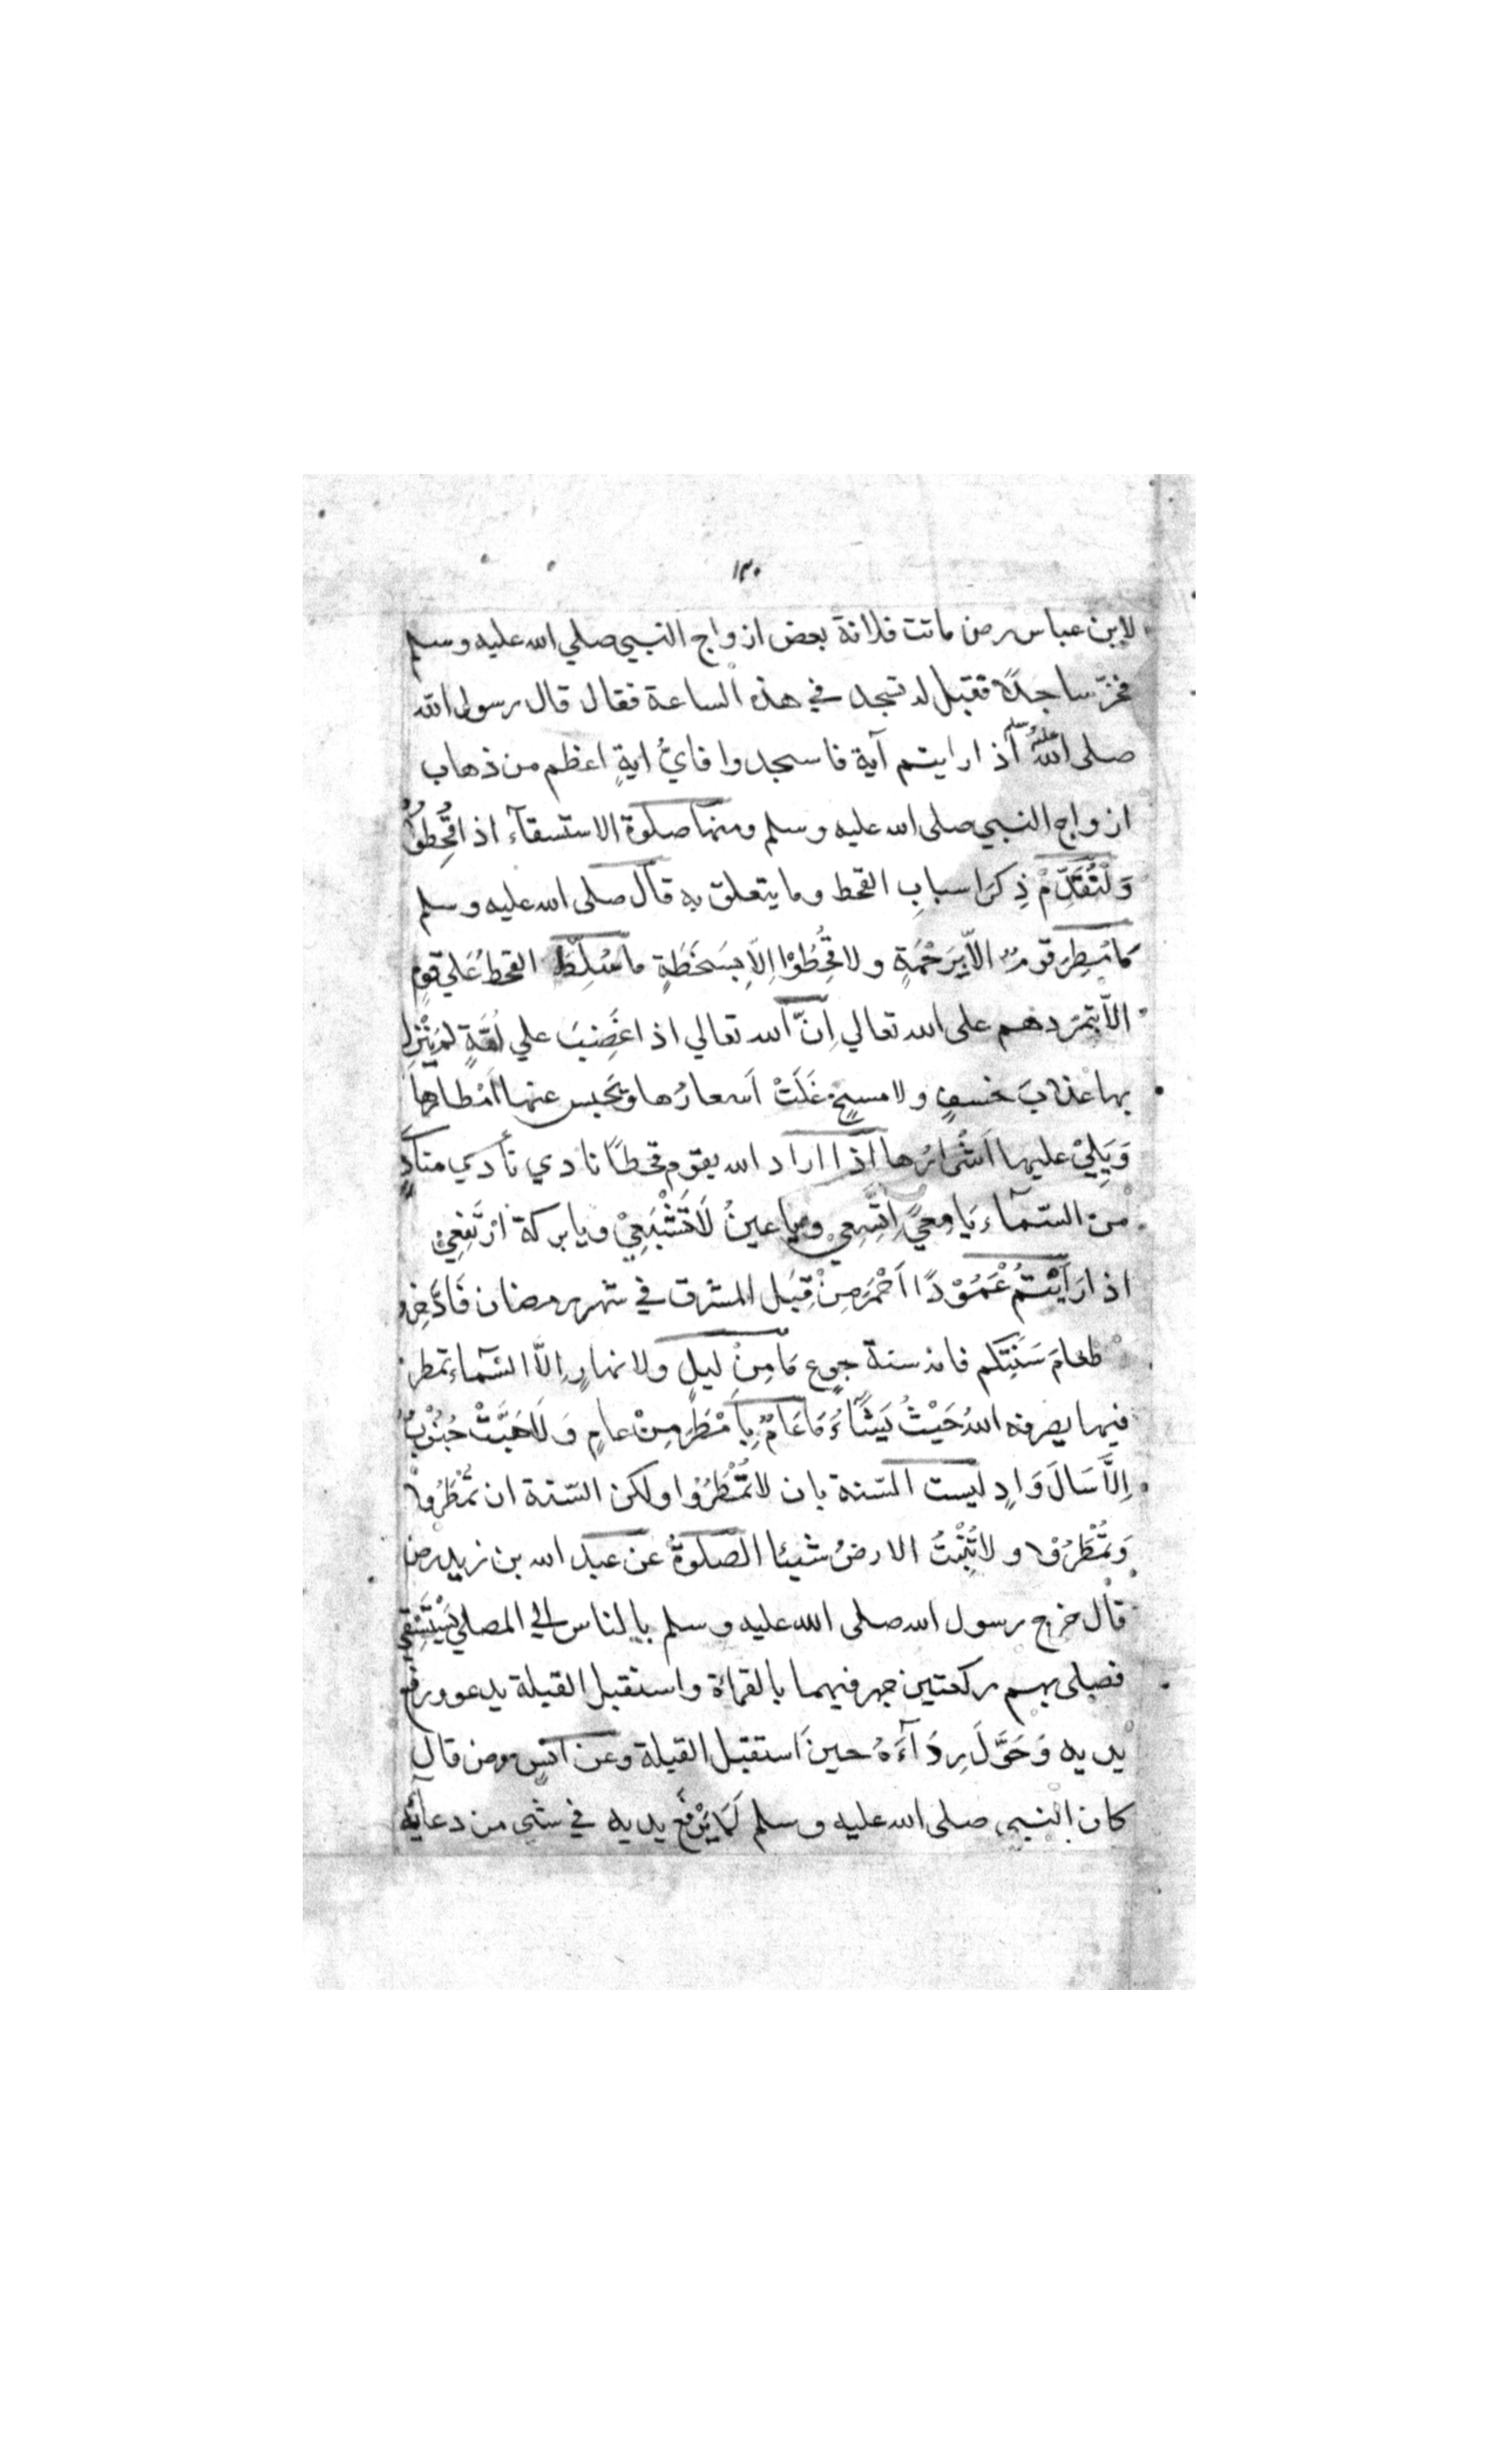 ١٣٠
لابن عباس رض ماتت فلانة بعض ازواج النبي صلي الله عليه وسلم
فخرّ ساجدًا فقيل له تسجد في هذه الساعة فقال قال رسول الله
صلى الله عليه وسلم اذا رايتم آية فاسجدوا فايُّ ايةٍ اعظم من ذهاب
ازواج النبي صلى الله عليه وسلم ومنها صلوة الاستسقآء اذا قُحِطوْا
وَلْنُقَدِّمْ ذِكرَ اسبابِ القحط وما يتعلق به قال صلى الله عليه وسلم
مَا مُطِرَ قومٌ الاّ بِرَحْمَةٍ ولا قُحِطُوْا اِلاّ بِسَخَطَةٍ ما سُلِّطَ القحطُ عَلي قومٍ
الاّ بتمرّدهم على الله تعالي اِنّ الله تعالي اذا غَضِبَ علي اُمّةٍ لم يُنْزِل
بها عذابَ خسفٍ ولا مسخٍ غَلَتْ اَسعارُها ويَحبس عنها اَمْطارها
وَيَلِيْ عليها اَشْرارُها اذا اراد الله بقومٍ قحطًا نادي منادٍ
من السّمآء يَا مِعيً اتَّسِعِي ويا عينُ لَا تَشْبَعِيْ ويا بركة ارْتَفِعِيْ
اذا رَاَيْتُمْ عَمُوْدًا اَحْمَرَ مِنْ قِبَل المشرق في شهر رمضان فَادَّخِرو
طعامَ سَنَتِكم فانه سنة جوع مَا مِنْ ليلٍ ولا نهارٍ اِلاّ السّمآء تمطر
فيها يصرفه اللهُ حَيْثُ يَشَآءُ مَا عَامٌ بِاَمْطَرَ مِنْ عامٍ وَلَا هَبَّتْ جُنُوْبٌ
اِلَّا سَالَ وَادٍ ليست السّنة بان لا تُمْطَرُوْا ولكن السّنة ان تُمْطَرُوْا
وَتُمْطَرُوْا ولا تُنْبِتُ الارضُ شيئا الصّلوةُ عن عبد الله بن زيد رض
قال خرج رسول الله صلى الله عليه وسلم بالناس الي المصلي يَسْتَسْقِي
فصلى بهم ركعتين جهر فيهما بالقراة واستقبل القبلة يدعو ورفع
يديه وَحَوَّلَ رِدَآءَهُ حينَ استقبل القبلة وعن انسٍ رض قال
كان النبي صلى الله عليه وسلم لَا يَرْفَع يديه في شي من دعآئه